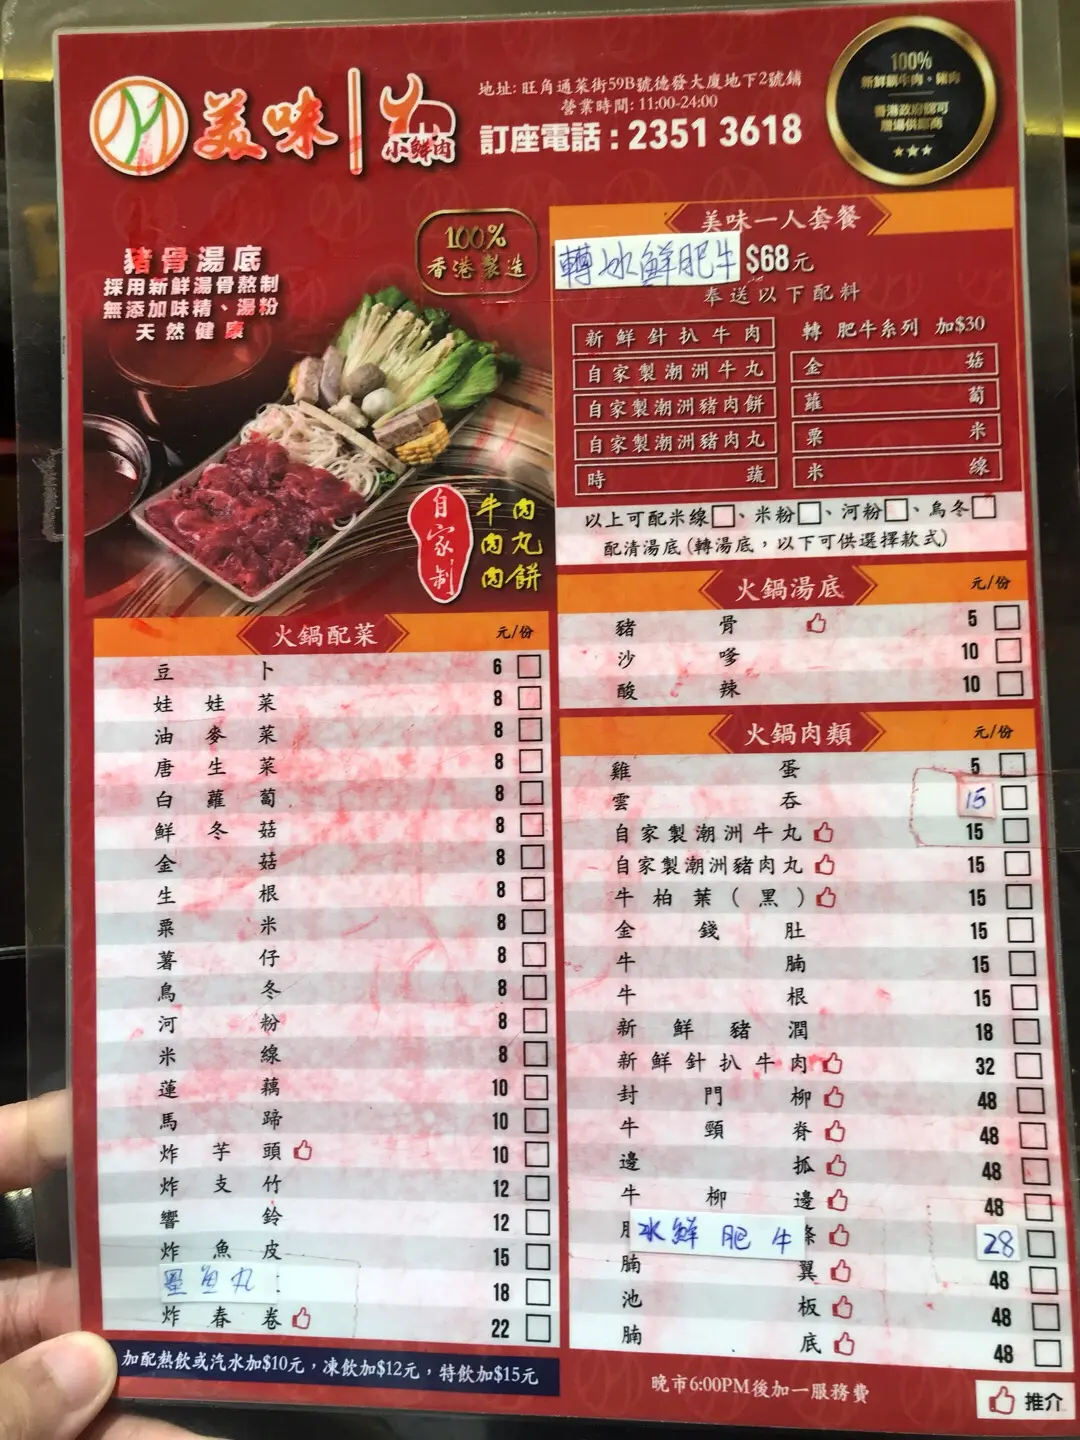 美味 小鮮肉
地址: 旺角通菜街59B號德發大廈地下2號舖
營業時間: 11:00-24:00
訂座電話：2351 3618
100%
新鮮靚牛肉。豬肉
香港政府認可
屠場供應商
豬骨湯底
採用新鮮湯骨熬制
無添加味精、湯粉
天然健康
100%
香港製造
自家制
牛肉
肉丸
肉餅
美味一人套餐
轉冰鮮肥牛 $68元
奉送以下配料
新鮮針扒牛肉 轉 肥牛系列 加$30
自家製潮洲牛丸 金菇
自家製潮洲豬肉餅 蘿蔔
自家製潮洲豬肉丸 粟米
時蔬 米線
以上可配米線□、米粉□、河粉□、烏冬□
配清湯底(轉湯底，以下可供選擇款式)
火鍋湯底 元/份
豬骨 5
沙嗲 10
酸辣 10
火鍋配菜 元/份
豆卜 6
娃娃菜 8
油麥菜 8
唐生菜 8
白蘿蔔 8
鮮冬菇 8
金菇 8
生根 8
粟米 8
薯仔 8
烏冬 8
河粉 8
米線 8
蓮藕 10
馬蹄 10
炸芋頭 10
炸支竹 12
響鈴 12
炸魚皮 15
墨魚丸 18
炸春卷 22
加配熱飲或汽水加$10元，凍飲加$12元，特飲加$15元
火鍋肉類 元/份
雞蛋 5
雲吞 15
自家製潮洲牛丸 15
自家製潮洲豬肉丸 15
牛柏葉(黑) 15
金錢肚 15
牛腩 15
牛根 15
新鮮豬潤 18
新鮮針扒牛肉 32
封門柳 48
牛頸脊 48
邊抓 48
牛柳邊 48
冰鮮肥牛 條 28
腩翼 48
池板 48
腩底 48
晚市6:00PM後加一服務費
推介